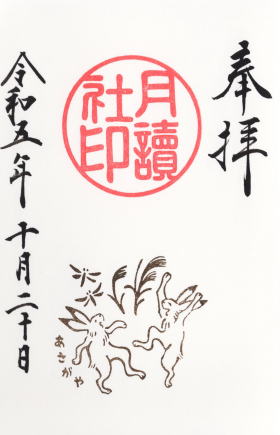 奉拝
月讀
社印
令和五年 十月二十日
あさがや